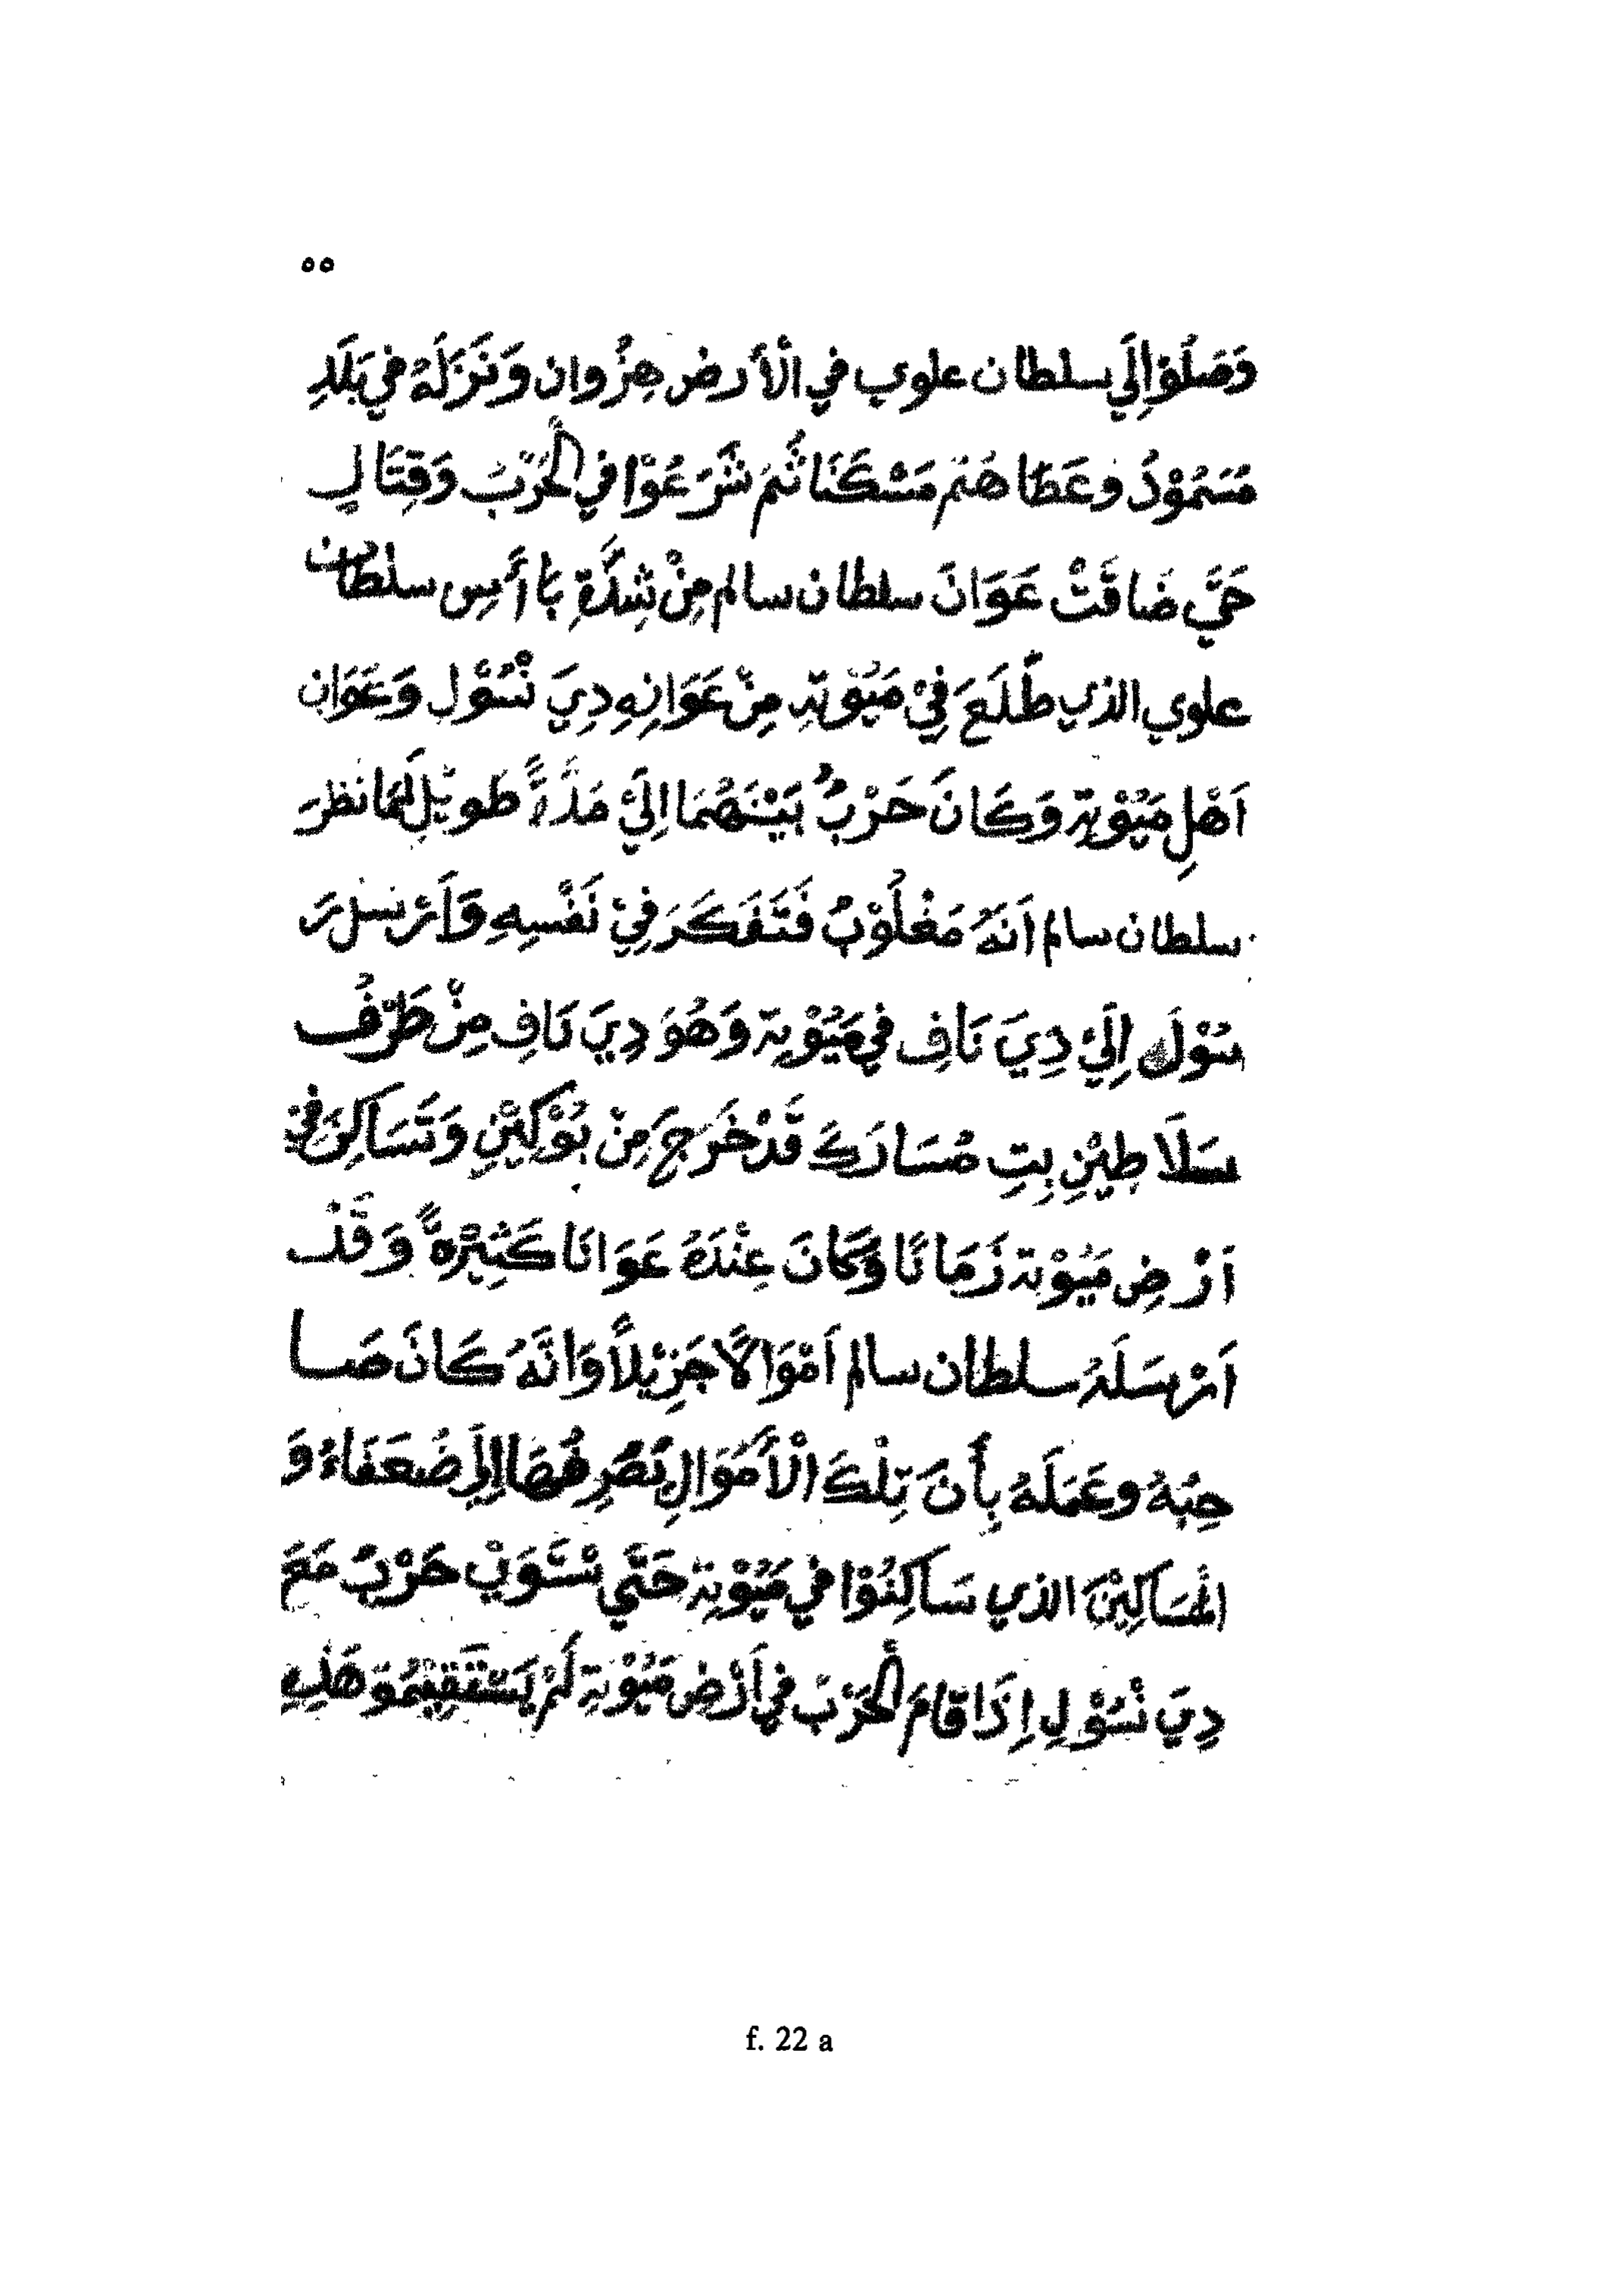 ٥٥
وَصَلُوْا إِلَي سلطان علوي في الْأَرض هِنْزُوان وَنَزَلَهُ في بَلَدِ
مَسَمُوْدُ وعَطَاهُمْ مَسْكَنَا ثُمَّ شَرَعُوْا في الْحَرْبَ وَقِتَالِ
حَتَّي ضَاقَتْ عَوَانَ سلطان سالم مِنْ شِدَّةِ بَاأَسِ سلطان
علوي الذي طَلَعَ فِيْ مَيُوْتِة مِنْ عَوَانِهِ دِيَ نْسُوْلِ وَعَوَانِ
اَهْلِ مَيُوْتِة وَكَانَ حَرْبُ بَيْنَهُمَا اِلَيْ مَدَّةً طويْلِ لَمَا نظرَ
سلطان سالم اَنَهُ مَغْلُوْبُ فَتَفَكَرَ فِيْ نَفْسِهِ وَاَرْسلَ رَ
سُوْلَه اِلَيْ دِيَ نَافِ في مَيُوْتِة وَهُوَ دِيَ نَافِ مِنْ طَرْفُ
سَلَاطِيْنِ بِتِ مُسَارَكَ قَدْ خَرَجَ مِنْ بُوْكِيْنِ وَتَسَاكِنَ فِيْ
اَرْضِ مَيُوْتة زَمَانًا وَكَانَ عِنْدَهُ عَوَانَا كَثِيْرَةً وَقَدْ
اَرْسَلَهُ سلطان سالم اَمْوَالًا جَزِيْلاً وَانَّهُ كَانَ صَا
حِبُهُ وعَمَلَهُ بِأَنَ تِلْكَ الْأَمُوَالِ نُصْرِفُهَا اِلَي ضُعَفَاءُ وَ
الْمَسَاكِيْنَ الذي سَاكِنُوْا في مَيُوْتِة حَتَّي نْسَوِيْ حَرْبُ مَعَ
دِيَ نْسُوْلِ اِذَا قَامَ الْحَرْبَ في اَرْضِ مَيُوْتِة لَمْ يَسْتَقِيْمُوَ هَذِهِ
f. 22 a